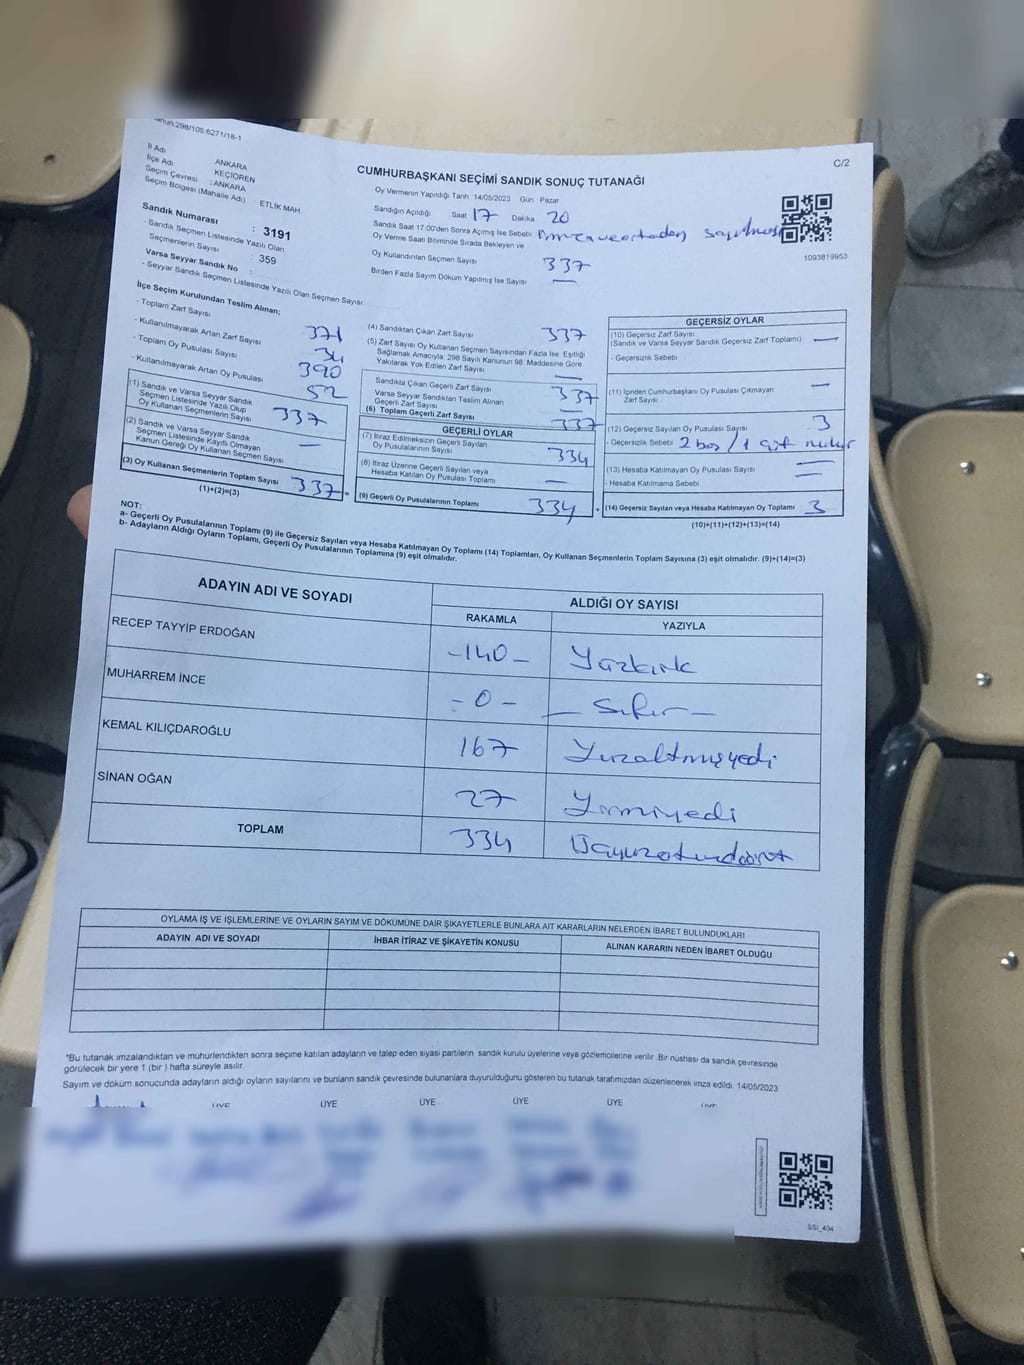 298/105.6271/18-1
C/2
İl Adı
ANKARA
İlçe Adı
KEÇİÖREN
Seçim Çevresi : ANKARA
Seçim Bölgesi (Mahalle Adı) : ETLİK MAH
Sandık Numarası : 3191
- Sandık Seçmen Listesinde Yazılı Olan
Seçmenlerin Sayısı : 359
Varsa Seyyar Sandık No :
- Seyyar Sandık Seçmen Listesinde Yazılı Olan Seçmen Sayısı:
CUMHURBAŞKANI SEÇİMİ SANDIK SONUÇ TUTANAĞI
Oy Vermenin Yapıldığı Tarih 14/05/2023 Gün Pazar
Sandığın Açıldığı Saat 17 Dakika 20
Sandık Saat 17.00'den Sonra Açılmış İse Sebebi
Oy Verme Saati Bitiminde Sırada Bekleyen ve
Oy Kullandırılan Seçmen Sayısı 337
Birden Fazla Sayım Döküm Yapılmış İse Sayısı —
1093819953
İlçe Seçim Kurulundan Teslim Alınan;
- Toplam Zarf Sayısı 371
- Kullanılmayarak Artan Zarf Sayısı 34
- Toplam Oy Pusulası Sayısı 390
- Kullanılmayarak Artan Oy Pusulası 52
(1) Sandık ve Varsa Seyyar Sandık
Seçmen Listesinde Yazılı Olup
Oy Kullanan Seçmenlerin Sayısı 337
(2) Sandık ve Varsa Seyyar Sandık
Seçmen Listesinde Kayıtlı Olmayan
Kanun Gereği Oy Kullanan Seçmen Sayısı —
(3) Oy Kullanan Seçmenlerin Toplam Sayısı 337 =
(1)+(2)=(3)
(4) Sandıktan Çıkan Zarf Sayısı 337
(5) Zarf Sayısı Oy Kullanan Seçmen Sayısından Fazla İse, Eşitliği
Sağlamak Amacıyla; 298 Sayılı Kanunun 98. Maddesine Göre
Yakılarak Yok Edilen Zarf Sayısı —
Sandıkta Çıkan Geçerli Zarf Sayısı 337
Varsa Seyyar Sandıktan Teslim Alınan
Geçerli Zarf Sayısı —
(6) Toplam Geçerli Zarf Sayısı 337
GEÇERLİ OYLAR
(7) İtiraz Edilmeksizin Geçerli Sayılan
Oy Pusulalarının Sayısı 334
(8) İtiraz Üzerine Geçerli Sayılan veya
Hesaba Katılan Oy Pusulası Toplamı —
(9) Geçerli Oy Pusulalarının Toplamı 334 +
GEÇERSİZ OYLAR
(10) Geçersiz Zarf Sayısı
(Sandık ve Varsa Seyyar Sandık Geçersiz Zarf Toplamı) —
- Geçersizlik Sebebi
(11) İçinden Cumhurbaşkanı Oy Pusulası Çıkmayan
Zarf Sayısı —
(12) Geçersiz Sayılan Oy Pusulası Sayısı 3
- Geçersizlik Sebebi 2 boş / 1 çift mühür
(13) Hesaba Katılmayan Oy Pusulası Sayısı —
- Hesaba Katılmama Sebebi —
(14) Geçersiz Sayılan veya Hesaba Katılmayan Oy Toplamı 3
(10)+(11)+(12)+(13)=(14)
NOT:
a- Geçerli Oy Pusulalarının Toplamı (9) ile Geçersiz Sayılan veya Hesaba Katılmayan Oy Toplamı (14) Toplamları, Oy Kullanan Seçmenlerin Toplam Sayısına (3) eşit olmalıdır. (9)+(14)=(3)
b- Adayların Aldığı Oyların Toplamı, Geçerli Oy Pusulalarının Toplamına (9) eşit olmalıdır.
ADAYIN ADI VE SOYADI
ALDIĞI OY SAYISI
RAKAMLA YAZIYLA
RECEP TAYYİP ERDOĞAN -140- Yüzkırk
MUHARREM İNCE - 0 - — Sıfır —
KEMAL KILIÇDAROĞLU 167 Yüzaltmışyedi
SİNAN OĞAN 27 Yirmiyedi
TOPLAM 334 Üçyüzotuzdört
OYLAMA İŞ VE İŞLEMLERİNE VE OYLARIN SAYIM VE DÖKÜMÜNE DAİR ŞİKAYETLERLE BUNLARA AİT KARARLARIN NELERDEN İBARET BULUNDUKLARI
ADAYIN ADI VE SOYADI İHBAR İTİRAZ VE ŞİKAYETİN KONUSU ALINAN KARARIN NEDEN İBARET OLDUĞU
*Bu tutanak imzalandıktan ve mühürlendikten sonra seçime katılan adayların ve talep eden siyasi partilerin sandık kurulu üyelerine veya gözlemcilerine verilir. Bir nüshası da sandık çevresinde
görülecek bir yere 1 (bir ) hafta süreyle asılır.
Sayım ve döküm sonucunda adayların aldığı oyların sayılarını ve bunların sandık çevresinde bulunanlara duyurulduğunu gösteren bu tutanak tarafımızdan düzenlenerek imza edildi. 14/05/2023
ÜYE ÜYE ÜYE ÜYE ÜYE
SSI_404